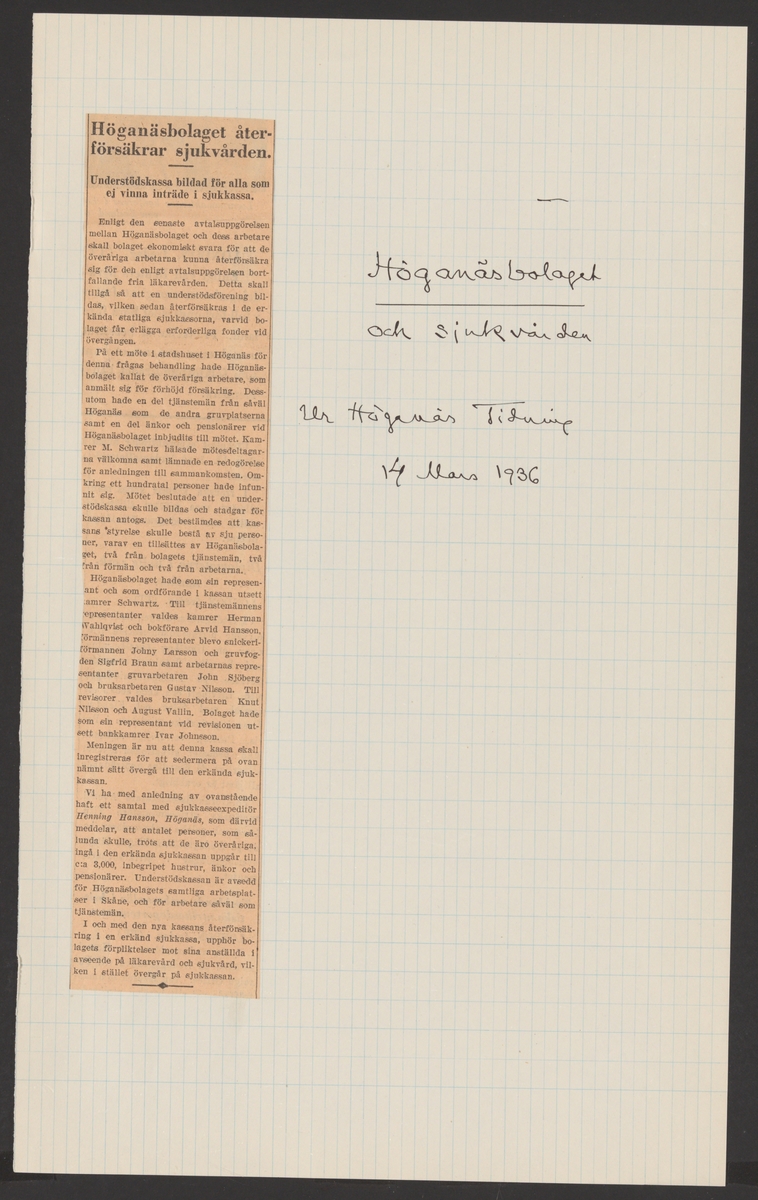 Höganäsbolaget åter-
försäkrar sjukvården.
Understödskassa bildad för alla som
ej vinna inträde i sjukkassa.
Enligt den senaste avtalsuppgörelsen
mellan Höganäsbolaget och dess arbetare
skall bolaget ekonomiskt svara för att de
överåriga arbetarna kunna återförsäkra
sig för den enligt avtalsuppgörelsen bort-
fallande fria läkarevården. Detta skall
tillgå så att en understödsförening bil-
das, vilken sedan återförsäkras i de er-
kända statliga sjukkassorna, varvid bo-
laget får erlägga erforderliga fonder vid
övergången.
På ett möte i stadshuset i Höganäs för
denna frågas behandling hade Höganäs-
bolaget kallat de överåriga arbetare, som
anmält sig för förhöjd försäkring. Dess-
utom hade en del tjänstemän från såväl
Höganäs som de andra gruvplatserna
samt en del änkor och pensionärer vid
Höganäsbolaget inbjudits till mötet. Kam-
rer M. Schwartz hälsade mötesdeltagar-
na välkomna samt lämnade en redogörelse
för anledningen till sammankomsten. Om-
kring ett hundratal personer hade infun-
nit sig. Mötet beslutade att en under-
stödskassa skulle bildas och stadgar för
kassan antogs. Det bestämdes att kas-
sans styrelse skulle bestå av sju perso-
ner, varav en tillsättes av Höganäsbola-
get, två från bolagets tjänstemän, två
från förmän och två från arbetarna.
Höganäsbolaget hade som sin represen-
tant och som ordförande i kassan utsett
kamrer Schwartz. Till tjänstemännens
representanter valdes kamrer Herman
Wahlqvist och bokförare Arvid Hansson,
förmännens representanter blevo snickeri-
förmannen Johny Larsson och gruvfog-
den Sigfrid Braun samt arbetarnas repre-
sentanter gruvarbetaren John Sjöberg
och bruksarbetaren Gustav Nilsson. Till
revisorer valdes bruksarbetaren Knut
Nilsson och August Vallin. Bolaget hade
som sin representant vid revisionen ut-
sett bankkamrer Ivar Johnsson.
Meningen är nu att denna kassa skall
inregistreras för att sedermera på ovan
nämnt sätt övergå till den erkända sjuk-
kassan.
Vi ha med anledning av ovanstående
haft ett samtal med sjukkasseexpeditör
Henning Hansson, Höganäs, som därvid
meddelar, att antalet personer, som så-
lunda skulle, trots att de äro överåriga,
ingå i den erkända sjukkassan uppgår till
c:a 3,000, inbegripet hustrur, änkor och
pensionärer. Understödskassan är avsedd
för Höganäsbolagets samtliga arbetsplat-
ser i Skåne, och för arbetare såväl som
tjänstemän.
I och med den nya kassans återförsäk-
ring i en erkänd sjukkassa, upphör bo-
lagets förpliktelser mot sina anställda i
avseende på läkarevård och sjukvård, vil-
ken i stället övergår på sjukkassan.
Höganäsbolaget
och sjukvården
Ur Höganäs Tidning
14 Mars 1936